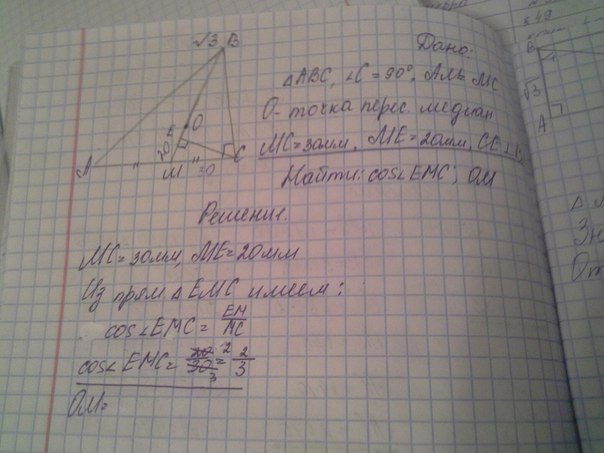 √3 B
Дано:
△ABC, ∠C = 90°, AM = MC
O - точка перес. медиан
MC = 30мм, ME = 20мм, CE ⊥
Найти: cos∠EMC; OM
E O
20
A M 30 C
Решение.
MC = 30мм, ME = 20мм
Из прям △EMC имеем:
cos∠EMC = EM/MC
cos∠EMC = 20/30 2 3 = 2/3
OM =
B
√3
A